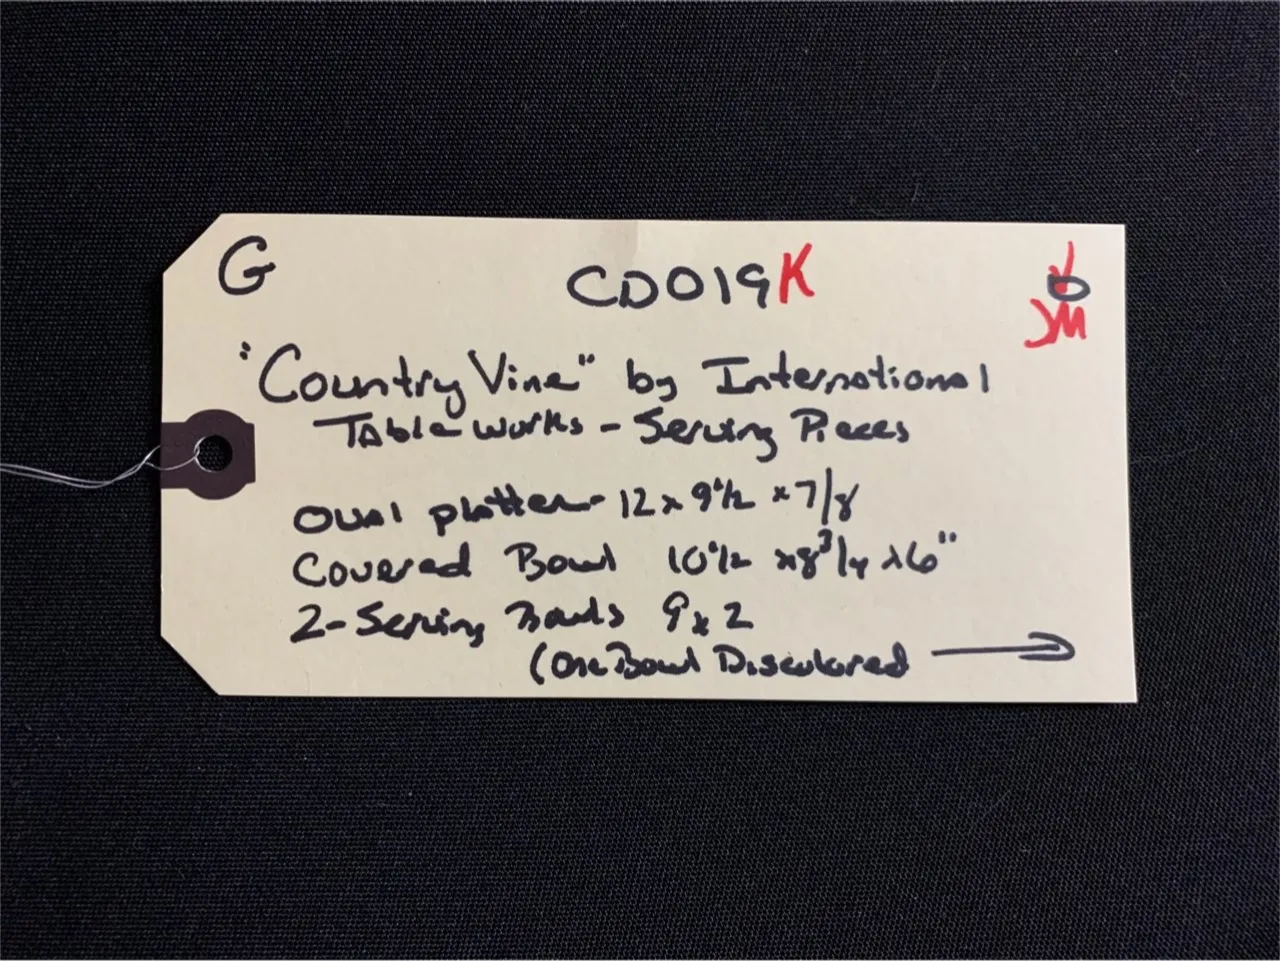 G CD019K
JM
"Country Vine" by International
Tableworks - Serving Pieces
Oval platter - 12 x 9 1/2 x 7/8
Covered Bowl 10 1/2 x 8 3/4 x 6"
2 - Serving Bowls 9 x 2
(One Bowl Discolored →